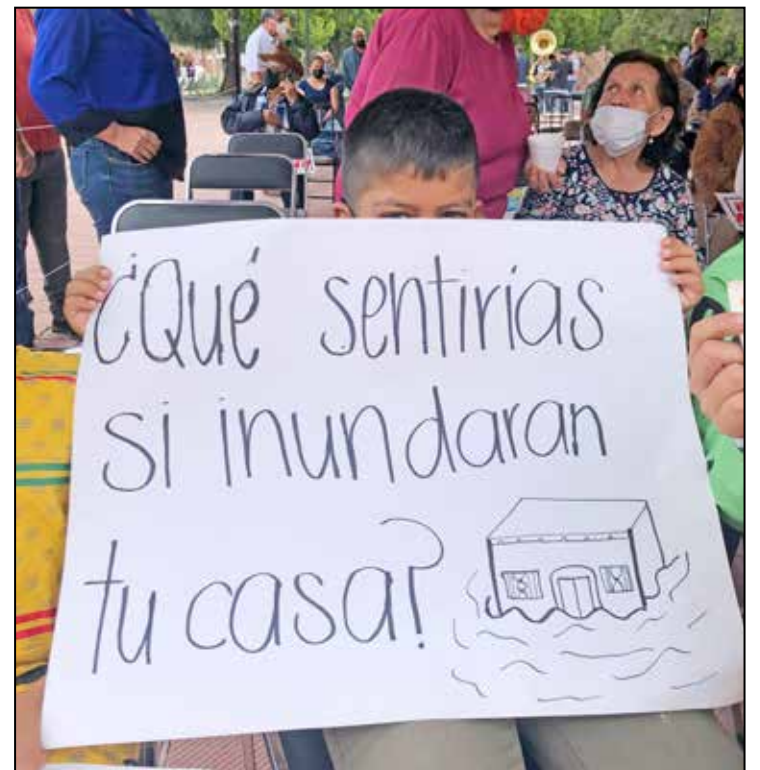 ¿Qué sentirías
si inundaran
tu casa?